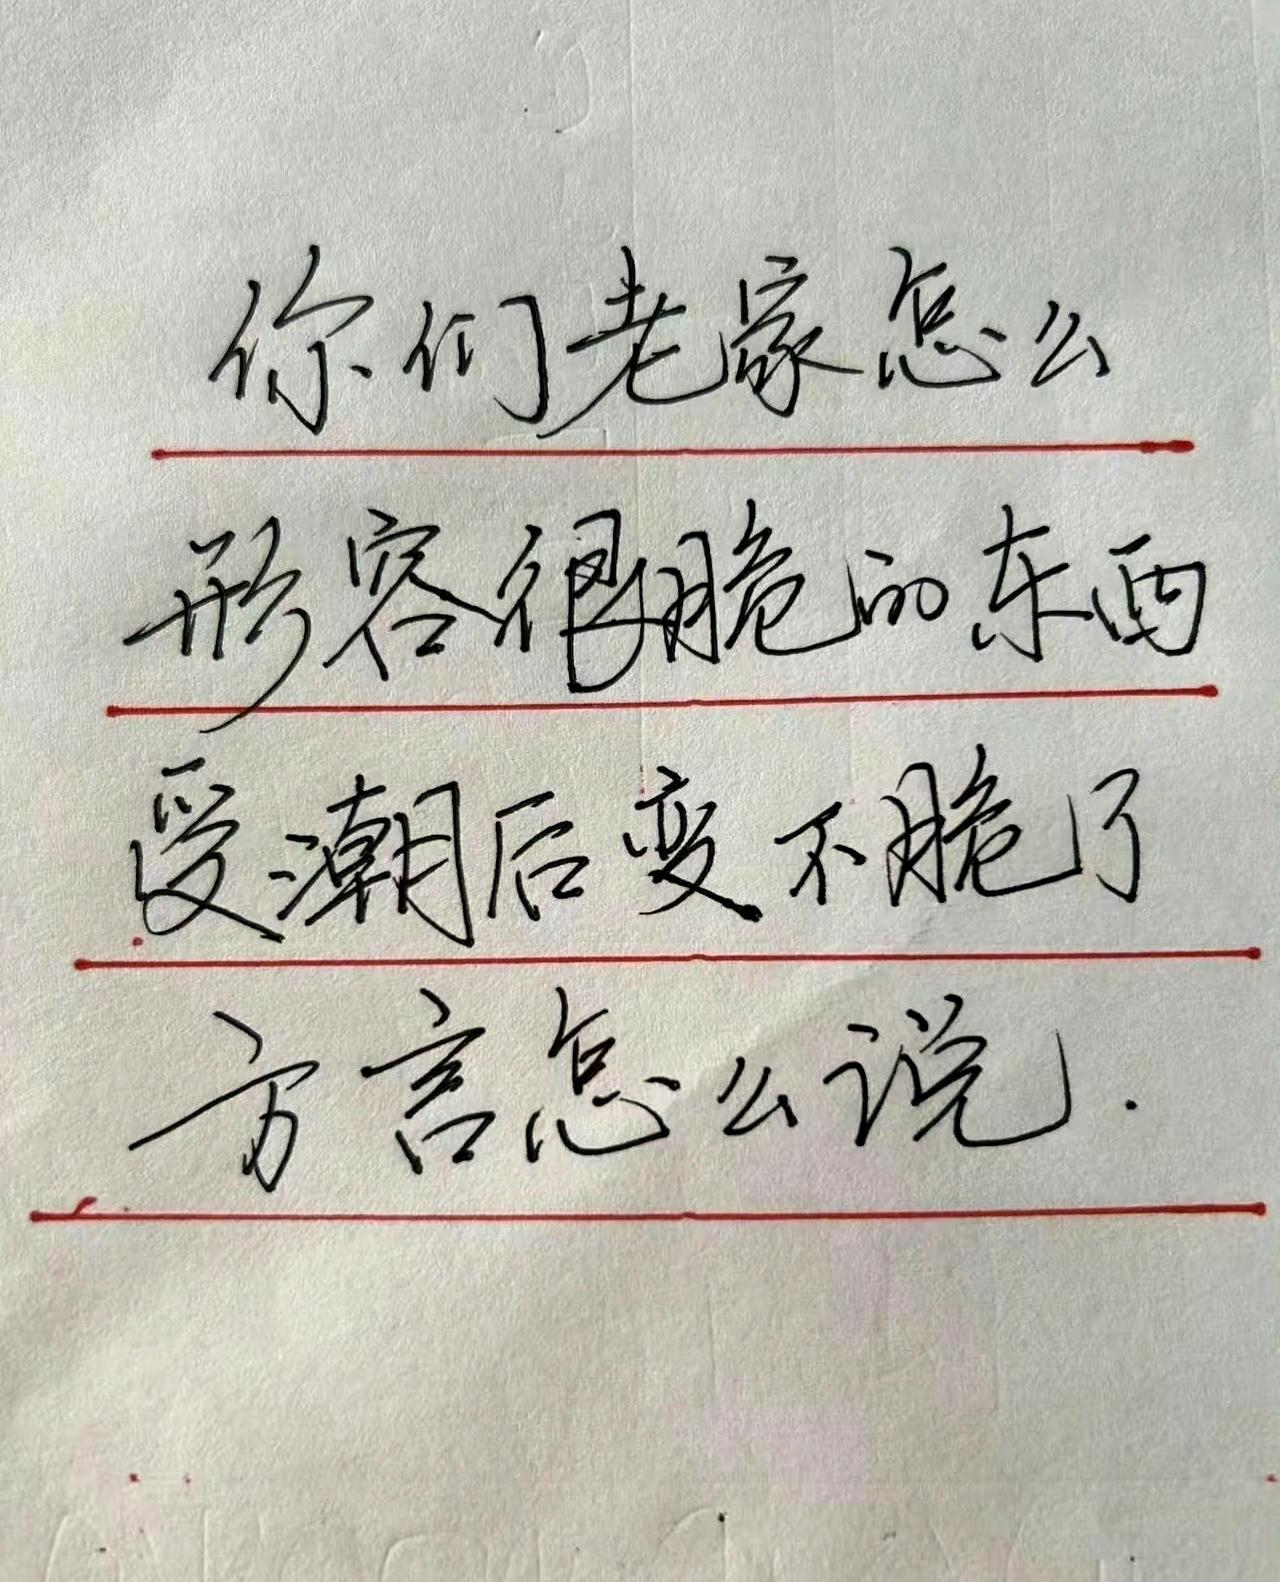 你们老家怎么
形容很脆的东西
受潮后变不脆了
方言怎么说.